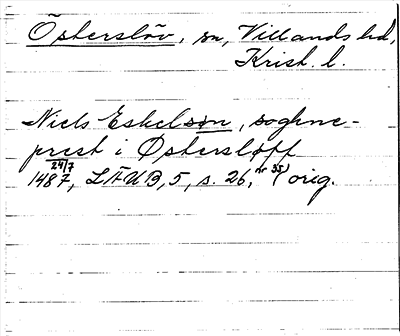 Östersløv, sn, Villands hd,
Krist. l.
Niels Eskelsøn, soghne-
prest i Østersløff
24/7
1487, LÄUB, 5, s. 26, nr 35) orig.